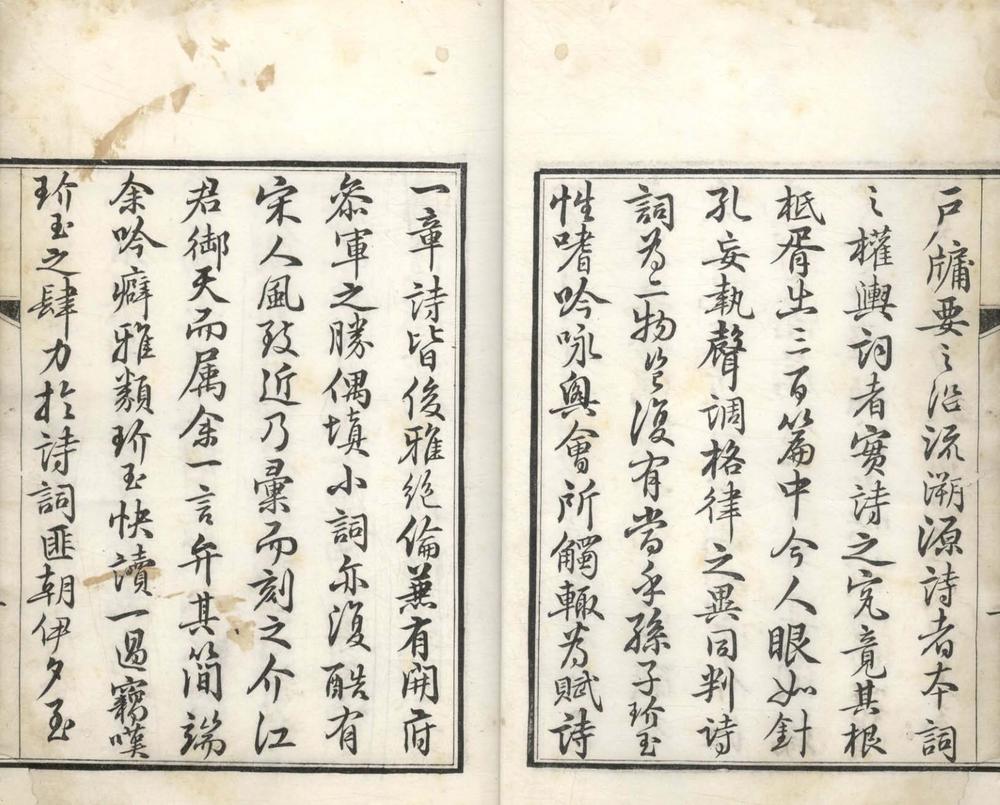 戸牖要之沿流溯源詩者本詞
之權輿詞者實詩之究竟其根
柢胥出三百篇中今人眼如針
孔妄執聲調格律之異同判詩
詞為二物豈復有當乎孫子玠玉
性嗜吟咏興會所觸輙為賦詩
一章詩皆俊雅絶倫蕪有開府
叅軍之勝偶填小詞亦復酷有
宋人風致近乃彙而刻之介江
君御天而属余一言弁其簡端
余吟癖雅類玠玉快讀一過竊嘆
玠玉之肆力於詩詞匪朝伊夕至